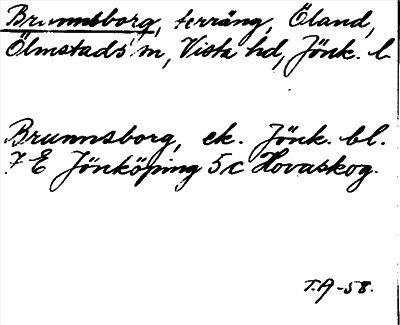 Brunnsborg, terräng, Öland,
Ölmstads sn, Vista hd, Jönk. l
Brunnsborg, ek. Jönk. bl.
7 E Jönköping 5c Hovaskog.
T.A -58.